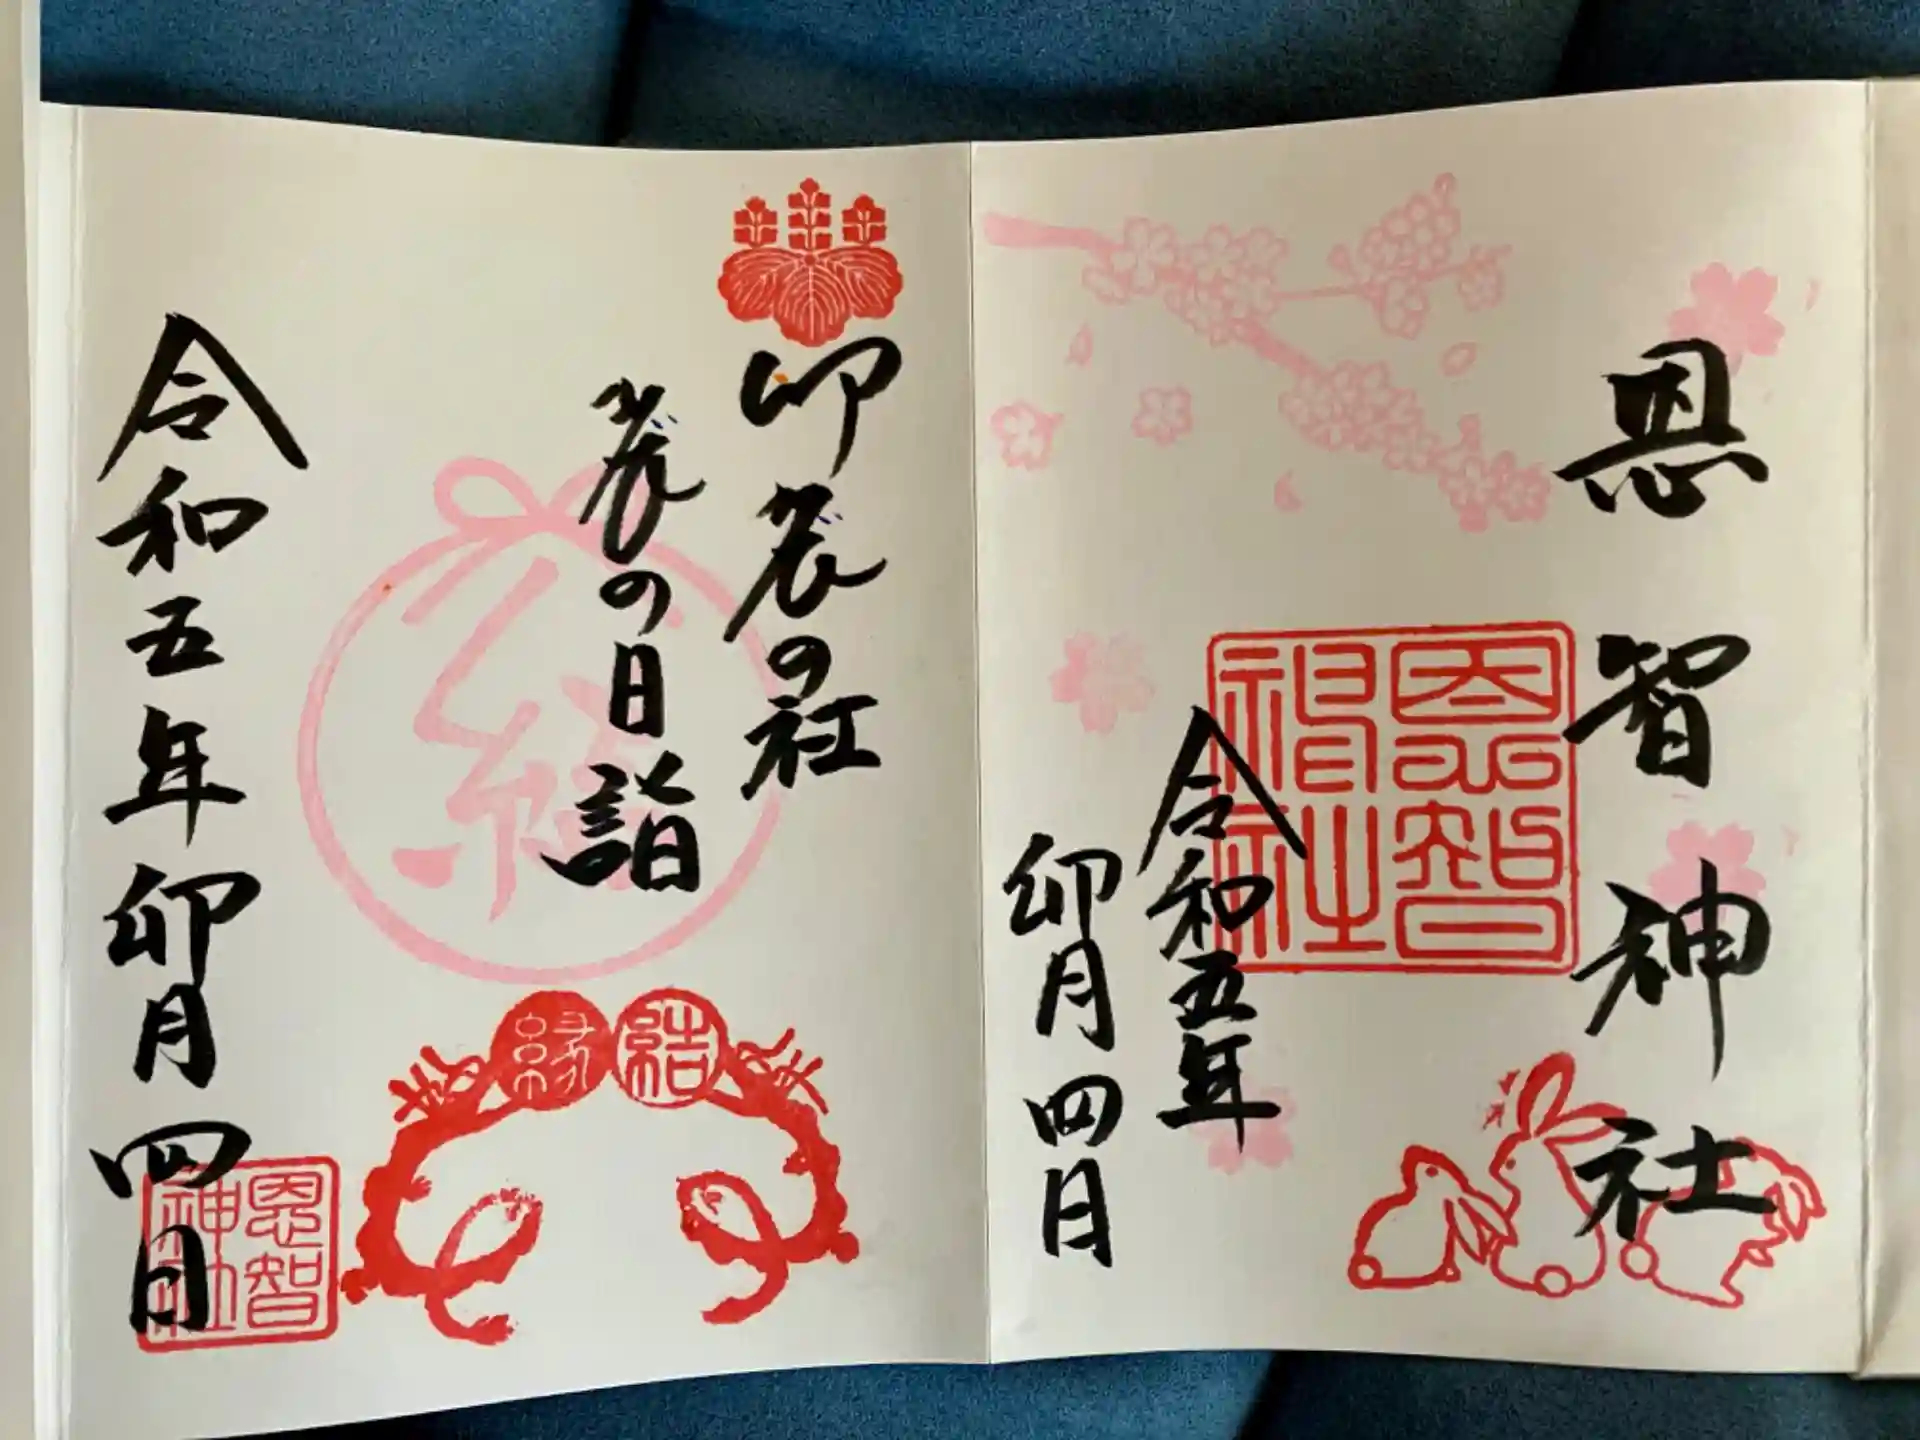 恩智神社
恩智
神社
令和五年
卯月四日
卯辰の社
辰の日詣
結
縁結
令和五年卯月四日
恩智
神社